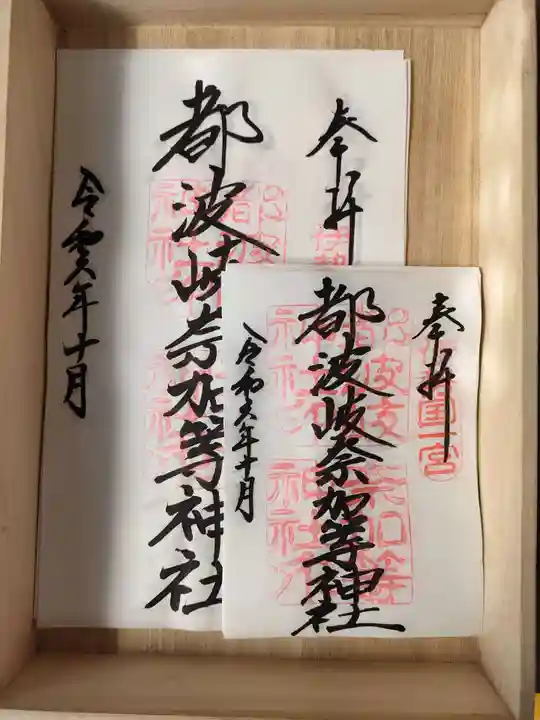 奉拝
都波岐奈加等神社
令和六年十月
奉拝
国一宮
都波岐奈加等神社
令和六年十月